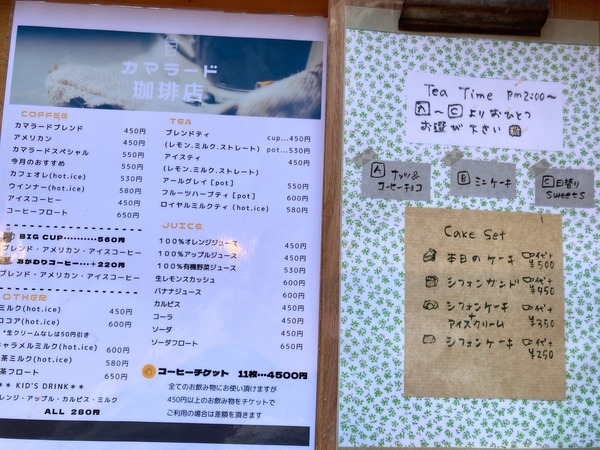 カマラード
珈琲店
COFFEE
カマラードブレンド 450円
アメリカン 450円
カマラードスペシャル 550円
今月のおすすめ 550円
カフェオレ(hot.ice) 530円
ウインナー(hot.ice) 580円
アイスコーヒー 450円
コーヒーフロート 650円
BIG CUP··········560円
ブレンド・アメリカン・アイスコーヒー
おかわりコーヒー···+220円
ブレンド・アメリカン・アイスコーヒー
OTHER
ミルク(hot.ice) 450円
ココア(hot.ice) 600円
*生クリームなしは50円引き
キャラメルミルク(hot.ice) 600円
茶ミルク(hot.ice) 580円
茶フロート 650円
** KID'S DRINK**
レンジ・アップル・カルピス・ミルク
ALL 280円
TEA
ブレンドティ cup...450円
(レモン.ミルク.ストレート) pot...530円
アイスティ 450円
(レモン.ミルク.ストレート)
アールグレイ [pot] 550円
フルーツハーブティ [pot] 600円
ロイヤルミルクティ (hot.ice) 580円
JUICE
100%オレンジジュース 450円
100%アップルジュース 450円
100%有機野菜ジュース 530円
生レモンスカッシュ 600円
バナナジュース 600円
カルピス 450円
コーラ 450円
ソーダ 450円
ソーダフロート 650円
コーヒーチケット 11枚···4500円
全てのお飲み物にお使い頂けますが
450円以上のお飲み物をチケットで
ご利用の場合は差額を頂きます
Tea Time pm2:00〜
A〜Cよりおひとつ
お選び下さい
A ナッツ&
コーヒーチョコ
B ミニケーキ
C 日替り
Sweets
Cake Set
本日のケーキ ¥500
シフォンサンド ¥450
シフォンケーキ
+
アイスクリーム ¥350
シフォンケーキ ¥250